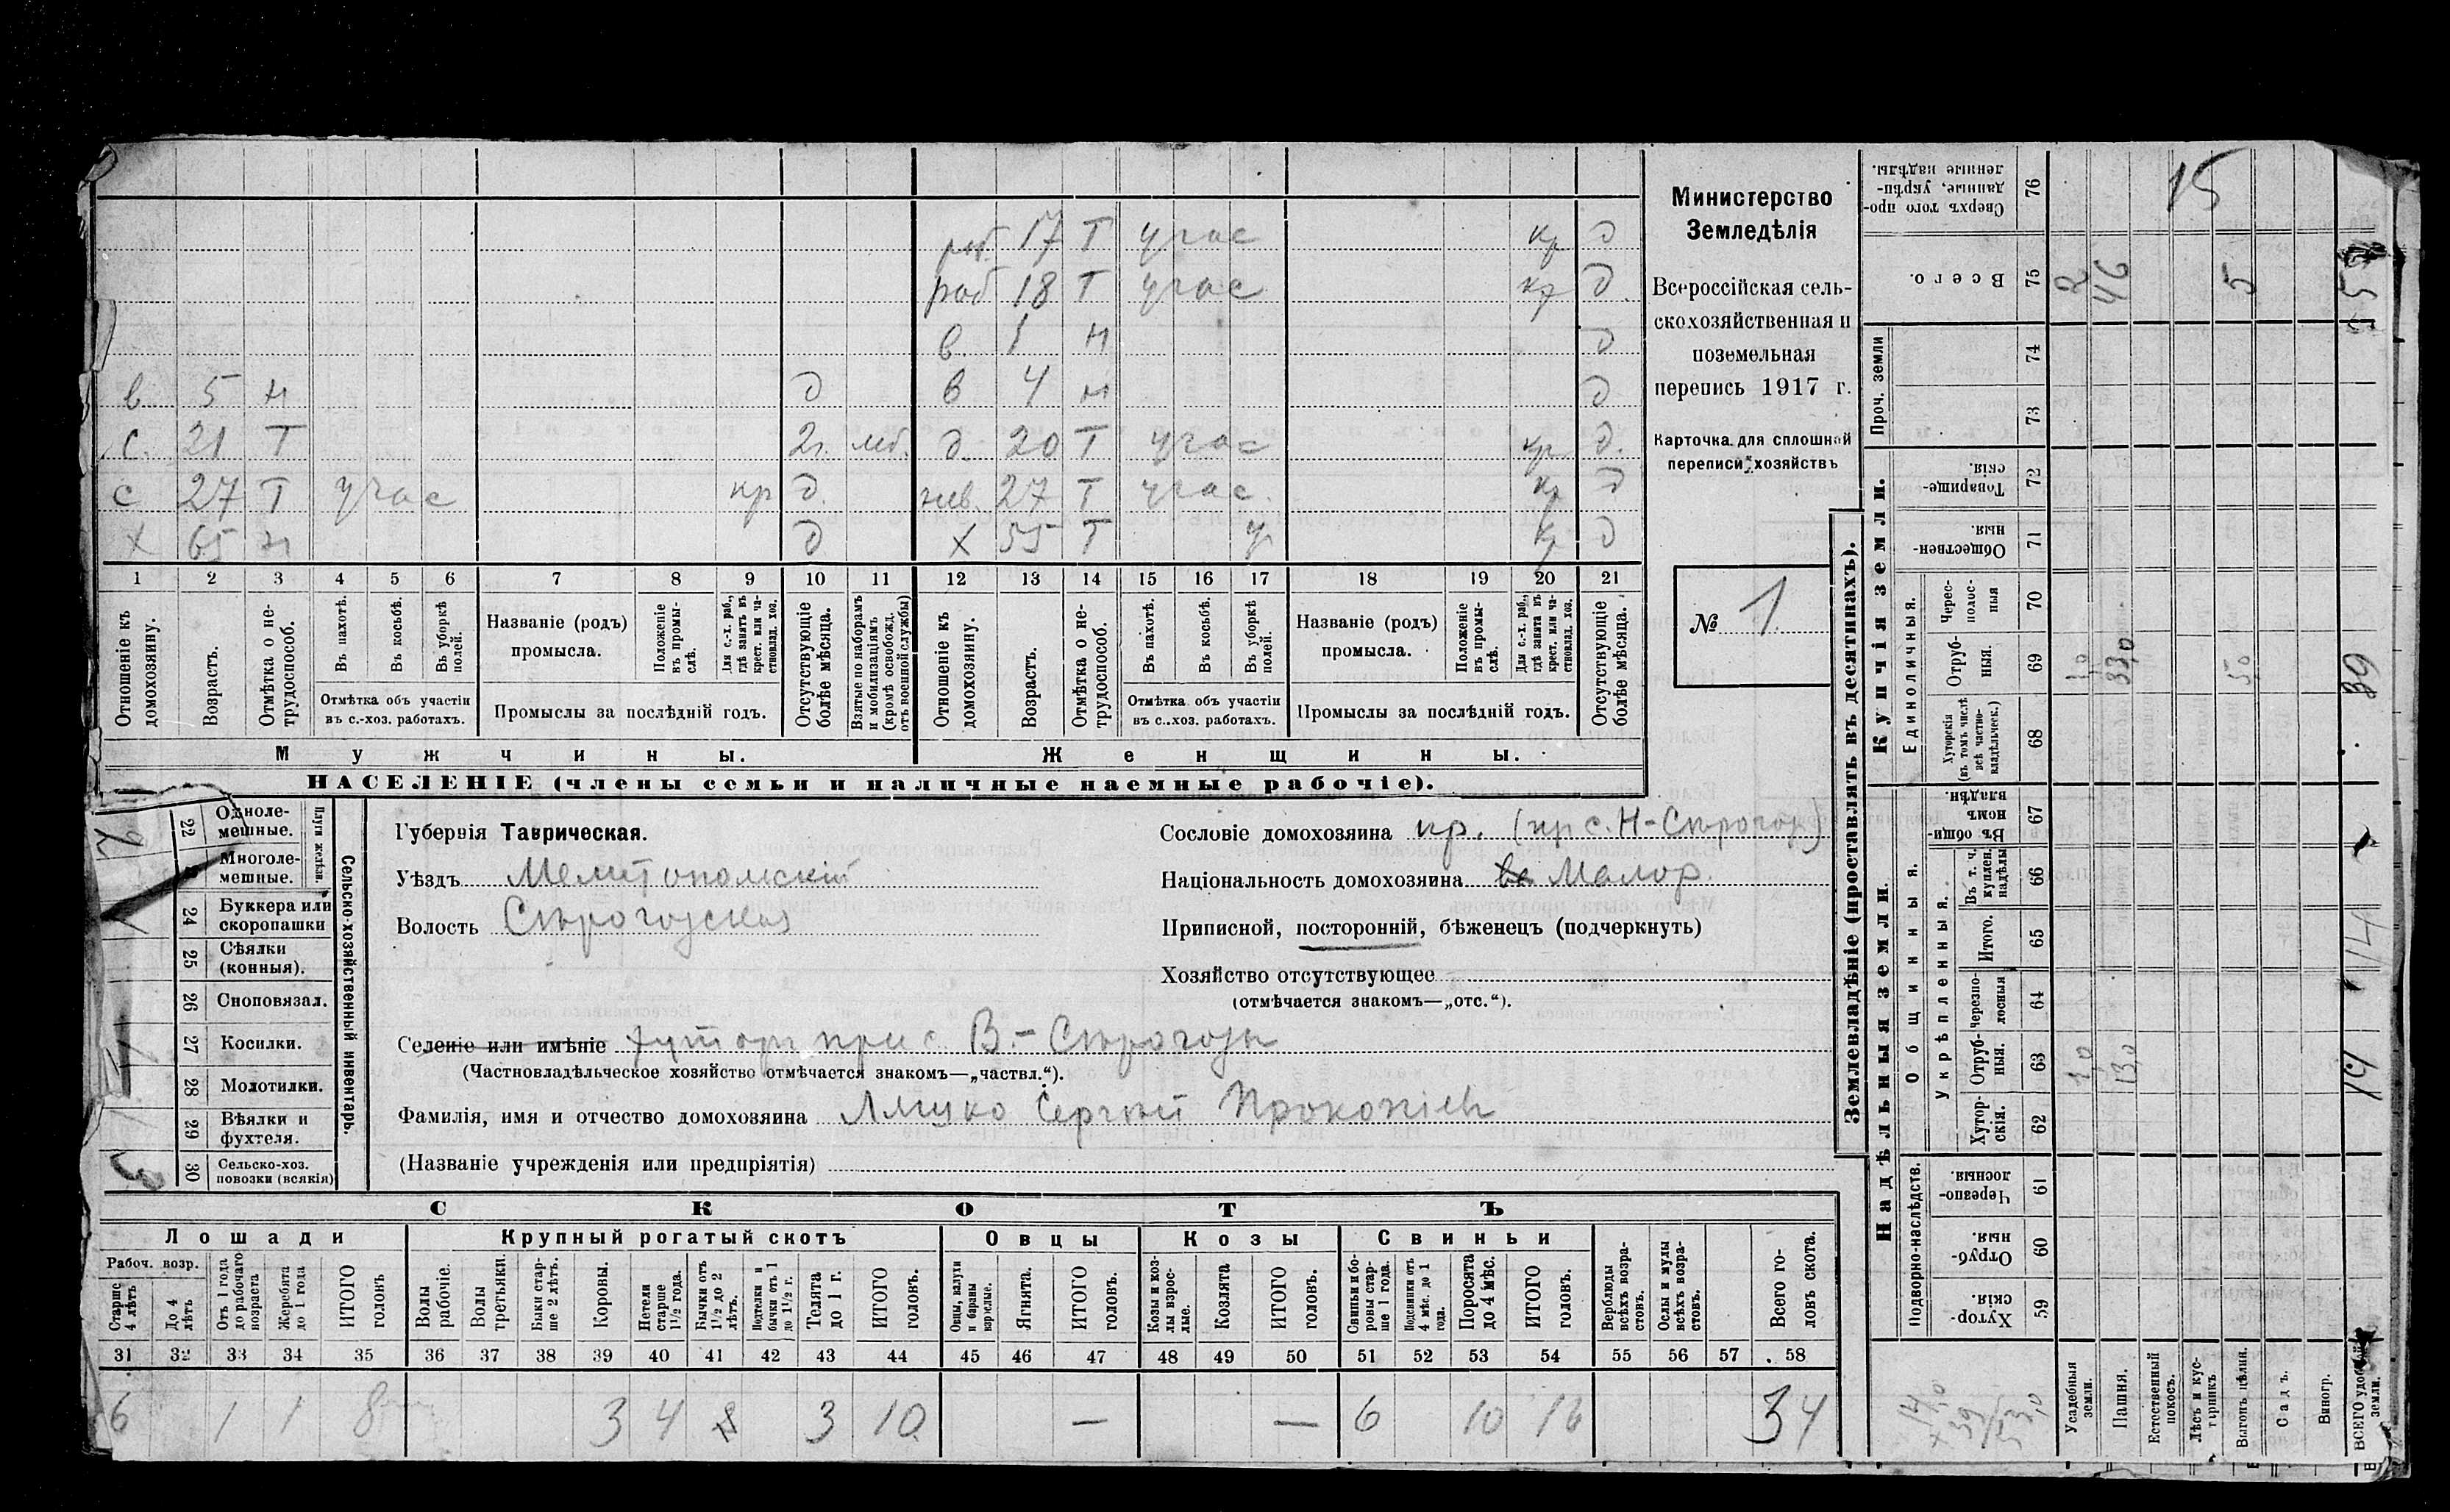 раб. 17 Т участ кр д
раб 18 Т участ кр д.
в. 1 н д
в 5 н д в 4 н д
с. 21 Т 2г. моб. д. 20 Т участ кр д.
с 27 Т участ кр д. нев. 27 Т участ. кр д
х 65 н д х 55 Т у кр д
1 2 3 4 5 6 7 8 9 10 11 12 13 14 15 16 17 18 19 20 21
Отношеніе къ домохозяину.
Возрастъ.
Отмѣтка о нетрудоспособ.
Въ пахотѣ.
Въ косьбѣ.
Въ уборкѣ полей.
Отмѣтка объ участіи
въ с.-хоз. работахъ.
Названіе (родъ)
промысла.
Положеніе въ промыслѣ.
Для с.-х. раб., гдѣ занятъ въ крест. или частновлад. хоз.
Промыслы за послѣдній годъ.
Отсутствующіе болѣе мѣсяца.
Взятые по наборамъ и мобилизаціямъ (кромѣ освобожд. отъ военной службы)
Отношеніе къ домохозяину.
Возрастъ.
Отмѣтка о нетрудоспособ.
Въ пахотѣ.
Въ косьбѣ.
Въ уборкѣ полей.
Отмѣтка объ участіи
въ с.-хоз. работахъ.
Названіе (родъ)
промысла.
Положеніе въ промыслѣ.
Для с.-х. раб., гдѣ занята въ крест. или частновлад. хоз.
Промыслы за послѣдній годъ.
Отсутствующіе болѣе мѣсяца.
Мужчины. Женщины.
НАСЕЛЕНІЕ (члены семьи и наличные наемные рабочіе).
Министерство
Земледѣлія
Всероссійская сель-
скохозяйственная и
поземельная
перепись 1917 г.
Карточка для сплошной
переписи хозяйствъ
№ 1.
22 Одноле-
мешные.
Многоле-
мешные.
Плуги желѣзн.
24 Буккера или
скоропашки
25 Сѣялки
(конныя).
26 Сноповязал.
27 Косилки.
28 Молотилки.
29 Вѣялки и
фухтеля.
30 Сельско-хоз.
повозки (всякія)
Сельско-хозяйственный инвентарь.
2
1
1
1
3
Губернія Таврическая.
Уѣздъ Мелитопольскій
Волость Сѣрогозская
Сословіе домохозяина кр. (пр с. Н-Сѣрогоз)
Національность домохозяина Малор.
Приписной, посторонній, бѣженецъ (подчеркнуть)
Хозяйство отсутствующее
(отмѣчается знакомъ—„отс.“).
Селеніе или имѣніе хуторъ при с В.-Сѣрогозы
(Частновладѣльческое хозяйство отмѣчается знакомъ—„частвл.“).
Фамилія, имя и отчество домохозяина Сергѣй Прокопіев
(Названіе учрежденія или предпріятія)
СКОТЪ
Лошади Крупный рогатый скотъ Овцы Козы Свиньи
Рабоч. возр.
Старше 4 лѣтъ
До 4 лѣтъ
Отъ 1 года до рабочаго возраста
Жеребята до 1 года
ИТОГО головъ
Волы рабочіе.
Волы третьяки.
Быки старше 2 лѣтъ.
Коровы.
Нетели старше 1½ года.
Бычки отъ 1½ до 2 лѣтъ.
Подтелки и бычки отъ 1 до 1½ г.
Телята до 1 г.
ИТОГО головъ.
Овцы, валухи и бараны взрослые.
Ягнята.
ИТОГО головъ.
Козы и козлы взрослые.
Козлята
ИТОГО головъ.
Свиньи и боровы старше 1 года.
Подсвинки отъ 4 мѣс. до 1 года.
Поросята до 4 мѣс.
ИТОГО головъ.
Верблюды всѣхъ возрастовъ.
Ослы и мулы всѣхъ возрастовъ.
Всего головъ скота.
31 32 33 34 35 36 37 38 39 40 41 42 43 44 45 46 47 48 49 50 51 52 53 54 55 56 57 58
6 1 1 8 3 4 3 10 — — 6 10 16 34
Землевладѣніе (проставлять въ десятинахъ).
Надѣльныя земли. Купчія земли.
Подворно-наслѣдств.
Общинныя.
Укрѣпленныя.
Единоличныя.
Проч. земли
Хуторскія. 59
Отрубныя. 60
Черезполосныя. 61
Хуторскія. 62
Отрубныя. 63
Черезполосныя 64
Итого. 65
Въ т. ч. куплен. надѣлы 66
Въ общинномъ владѣн. 67
Хуторскія (въ томъ числѣ всѣ частновладѣльческ.) 68
Отрубныя. 69
Череcполосныя 70
Общественныя. 71
Товарищескія. 72
73
74
Всего. 75
Сверхъ того проданные, укрѣпленные надѣлы. 76
Усадебныя земли.
Пашня.
Естественный покосъ.
Лѣсъ и кустарникъ
Выгонъ цѣлин.
Садъ.
Виногр.
ВСЕГО удобной земли.
1,0 13,0 14 14
1,0 33,0 5,0 39
2 46 5 53
15
14,0
39
53,0